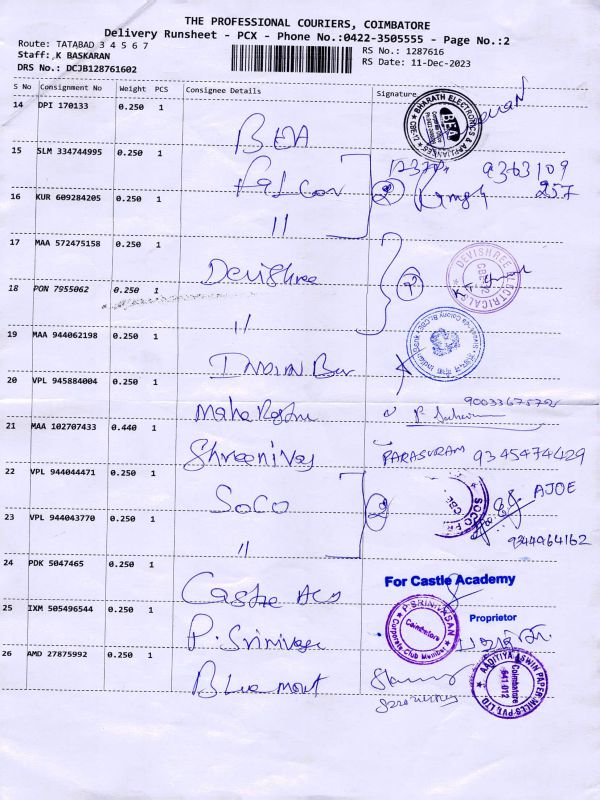 THE PROFESSIONAL COURIERS, COIMBATORE
Delivery Runsheet - PCX - Phone No.:0422-3505555 - Page No.:2
Route: TATABAD 3 4 5 6 7
RS No.: 1287616
Staff: K BASKARAN
RS Date: 11-Dec-2023
DRS No.: DCJB128761602
S No Consignment No Weight PCS Consignee Details Signature
14 DPI 170133 0.250 1 BEA
BHARATH ELECTRONICS & APPLIANCES
BEA
15 SLM 334744995 0.250 1 Falcon
2
9363109
257
16 KUR 609284205 0.250 1 "
17 MAA 572475158 0.250 1 Devishree
DEVISHREE ELECTRICALS
18 PON 7955062 0.250 1 "
19 MAA 944062198 0.250 1
20 VPL 945884004 0.250 1
21 MAA 102707433 0.440 1 Shreenivas PARASURAM 9345474429
22 VPL 944044471 0.250 1 SOCO 2 AJOE
SOCO
CBE
23 VPL 944043770 0.250 1 "
9344464162
24 PDK 5047465 0.250 1 Castle
For Castle Academy
Proprietor
25 IXM 505496544 0.250 1 P. Srinivasan
P. SRINIVASAN
Coimbatore
Corporate Club Member
26 AMD 27875992 0.250 1 Blue mount
AADITIYA ASWIN PAPER MILLS PVT. LTD
Coimbatore
641 012